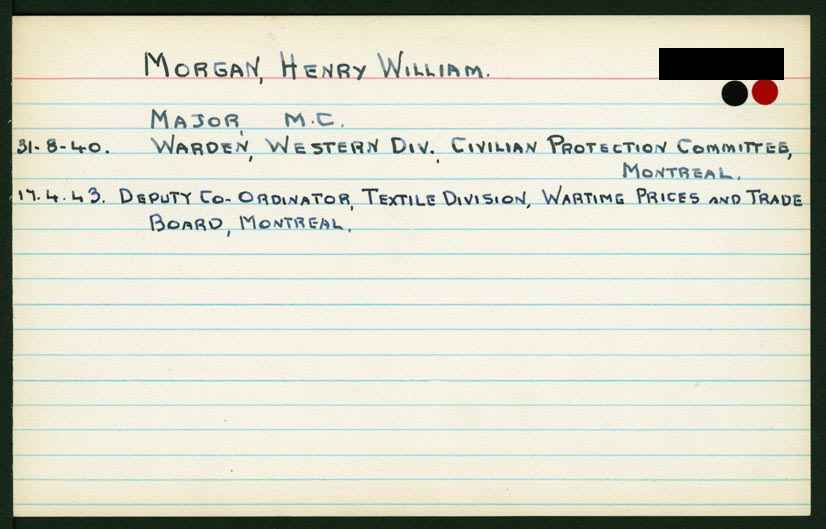 MORGAN, HENRY WILLIAM.
MAJOR, M.C.
31-8-40. WARDEN, WESTERN DIV., CIVILIAN PROTECTION COMMITTEE,
MONTREAL.
17.4.43. DEPUTY CO-ORDINATOR, TEXTILE DIVISION, WARTIME PRICES AND TRADE
BOARD, MONTREAL.